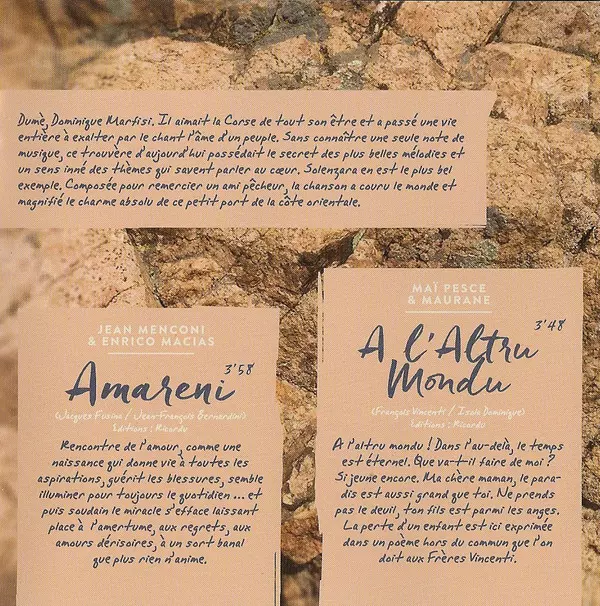 Dumè, Dominique Marfisi. Il aimait la Corse de tout son être et a passé une vie
entière à exalter par le chant l'âme d'un peuple. Sans connaître une seule note de
musique, ce trouvère d'aujourd'hui possédait le secret des plus belles mélodies et
un sens inné des thèmes qui savent parler au cœur. Solenzara en est le plus bel
exemple. Composée pour remercier un ami pêcheur, la chanson a couru le monde et
magnifié le charme absolu de ce petit port de la côte orientale.
JEAN MENCONI
& ENRICO MACIAS
Amareni 3'58
(Jacques Fusina / Jean-François Bernardini)
Éditions : Ricordu
Rencontre de l'amour, comme une
naissance qui donne vie à toutes les
aspirations, guérit les blessures, semble
illuminer pour toujours le quotidien ... et
puis soudain le miracle s'efface laissant
place à l'amertume, aux regrets, aux
amours dérisoires, à un sort banal
que plus rien n'anime.
MAÏ PESCE
& MAURANE
A l'Altru 3'48
Mondu
(François Vincenti / Isola Dominique)
Éditions : Ricordu
A l'altru mondu ! Dans l'au-delà, le temps
est éternel. Que va-t-il faire de moi ?
Si jeune encore. Ma chère maman, le para-
dis est aussi grand que toi. Ne prends
pas le deuil, ton fils est parmi les anges.
La perte d'un enfant est ici exprimée
dans un poème hors du commun que l'on
doit aux Frères Vincenti.